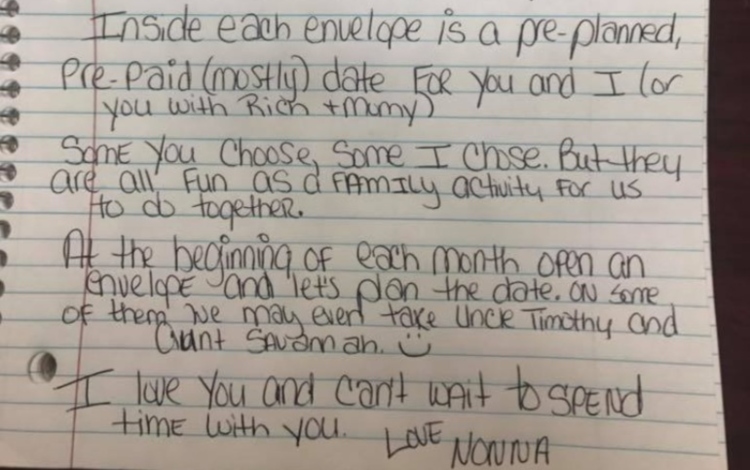 Inside each envelope is a pre-planned,
Pre-Paid (mostly) date FOR you and I (or
you with Rich + mumy)
Some You Choose, Some I Chose. But they
are all Fun as a FAMILY activity For us
to do together.
At the beginning of each month open an
envelope and let's plan the date. ON some
of them we may even take Uncle Timothy and
Aunt Savannah.
I love You and can't wait to SPEND
time with you. Love NONNA